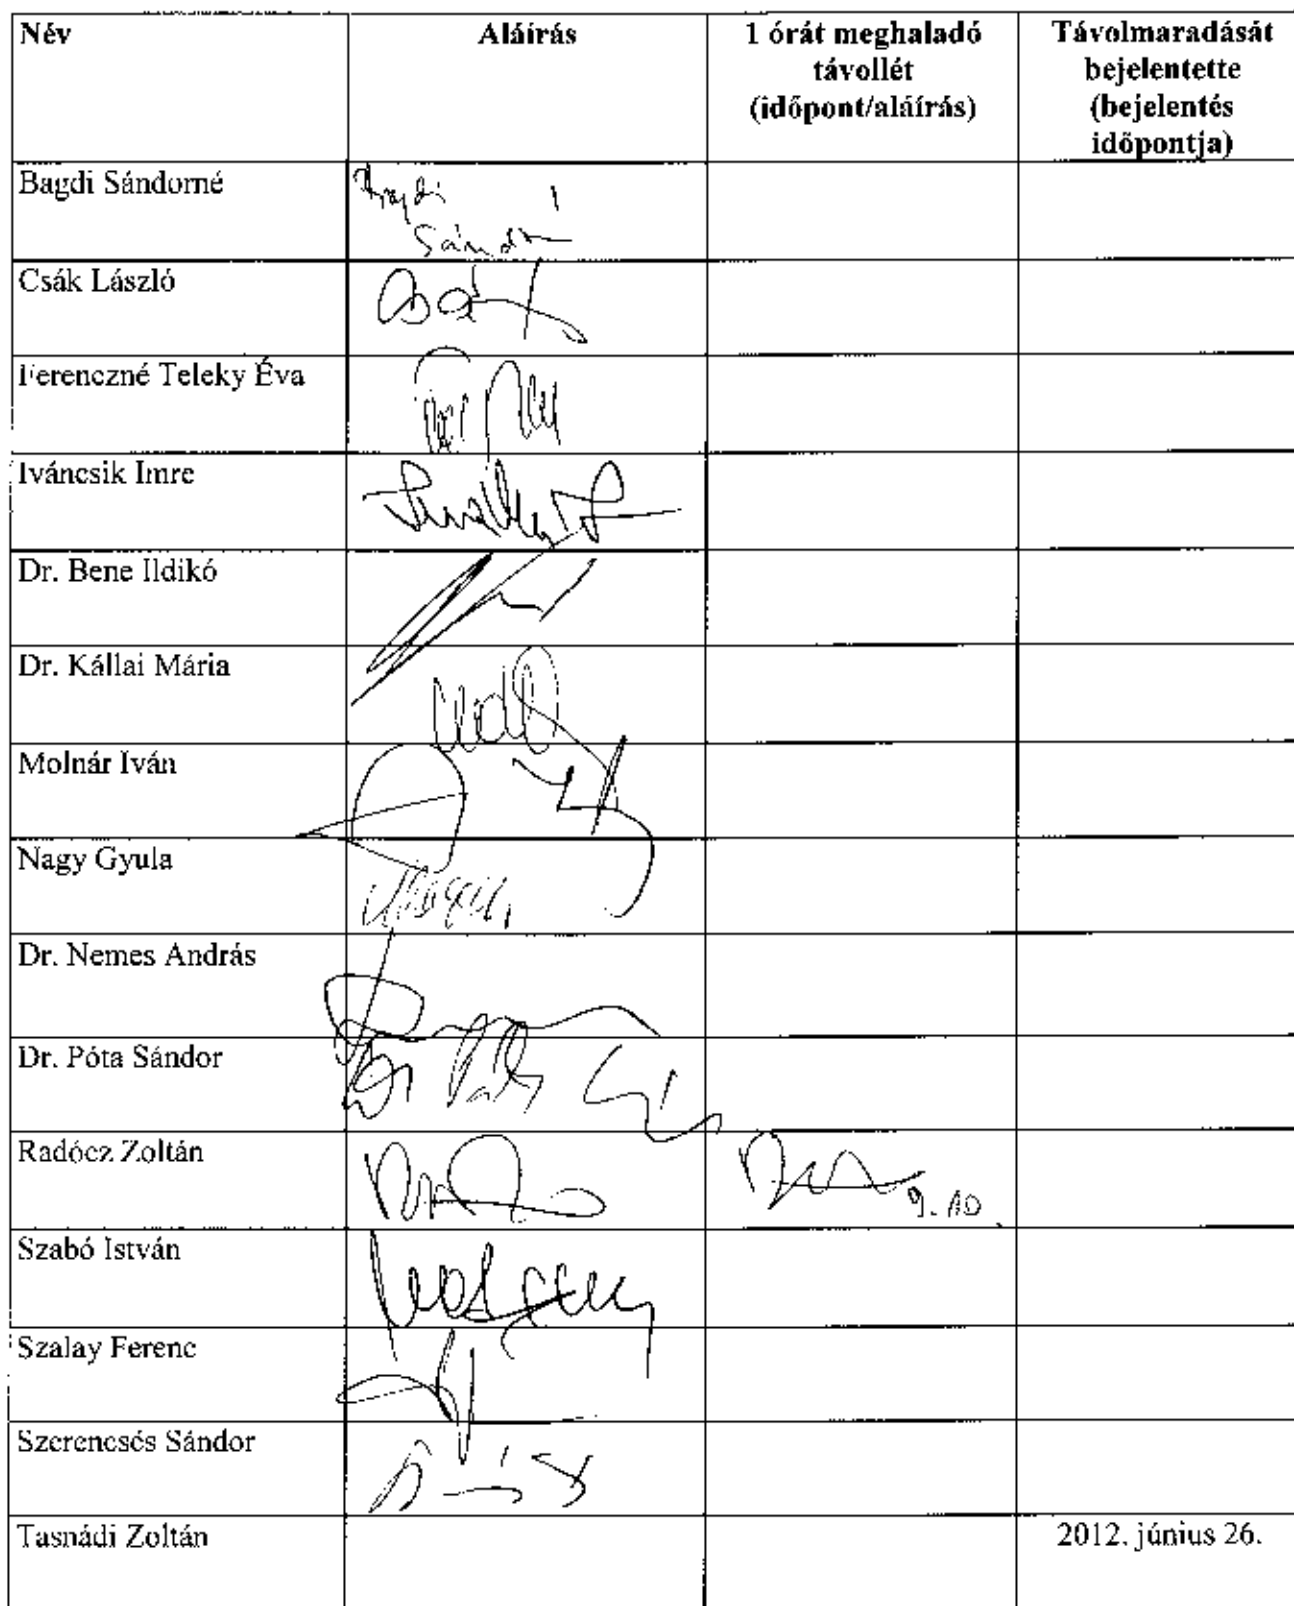 Név
Aláírás
1 órát meghaladó
távollét
(időpont/aláírás)
Távolmaradását
bejelentette
(bejelentés
időpontja)
Bagdi Sándorné
Csák László
Ferenczné Teleky Éva
Iváncsik Imre
Dr. Bene Ildikó
Dr. Kállai Mária
Molnár Iván
Nagy Gyula
Dr. Nemes András
Dr. Póta Sándor
Radócz Zoltán
9.10.
Szabó István
Szalay Ferenc
Szerencsés Sándor
Tasnádi Zoltán
2012. június 26.